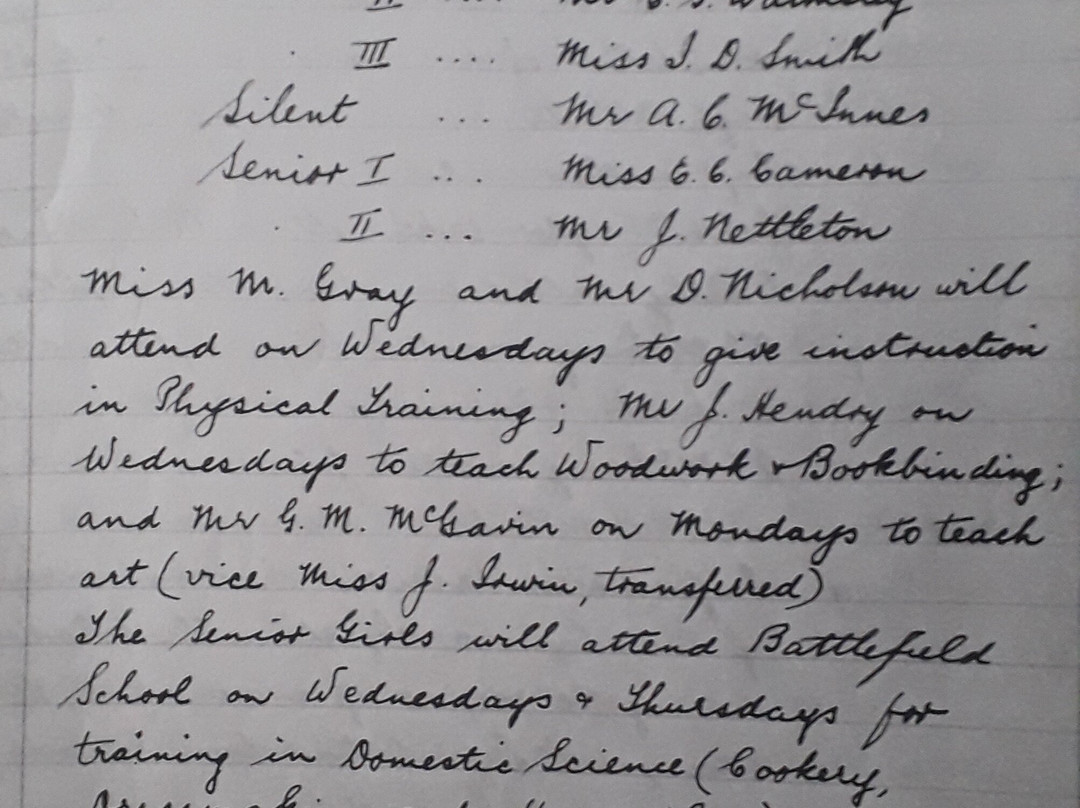 II ... Mr
III .... Miss I. D. Smith
Silent ... Mr A. C. McInnes
Senior I ... Miss C. C. Cameron
II ... Mr J. Nettleton
Miss M. Gray and Mr D. Nicholson will
attend on Wednesdays to give instruction
in Physical Training; Mr J. Hendry on
Wednesdays to teach Woodwork & Bookbinding;
and Mr G. M. McGavin on Mondays to teach
art (vice Miss J. Irwin, transferred)
The Senior Girls will attend Battlefield
School on Wednesdays & Thursdays for
training in Domestic Science (Cookery,